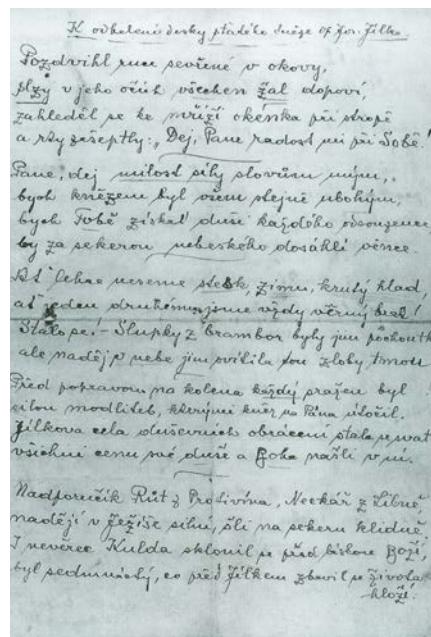 K odhalení desky mladého kněze P. Jos. Jílka.
Pozdvihl ruce sevřené v okovy,
slzy v jeho očích všechen žal dopoví
zahleděl se ke mříži okénka při stropě
a rty zašeptly: „Dej, Pane radost mi při Sobě!
Pane, dej milost síly slovům mým,
bych knězem byl všem stejně ubohým,
bych Tobě získal duše každého odsouzence
by za sekerou nebeského dosáhli věnce.
Ať lehce neseme stesk, zimu, krutý hlad,
ať jeden druhému jsme vždy věrný brat!
Stalo se. – Slupky z brambor byly jim pochoutk
ale naděje nebe jim svítila tou zloby tmou
Před popravou na kolena každý sražen byl
silou modliteb, kterými kněz na Pána útočil.
Jílkova cela duševních obrácení stala se
všichni cenu své duše a Boha našli v ní.
Nadporučík Růt z Protivína, Neckář z Libně,
nadějí v Ježíše silni, šli na sekeru klidně,
I nevěrec Kulda sklonil se před láskou Boží,
byl sedmnáctý, co před Jílkem zbavil se života
hloží.